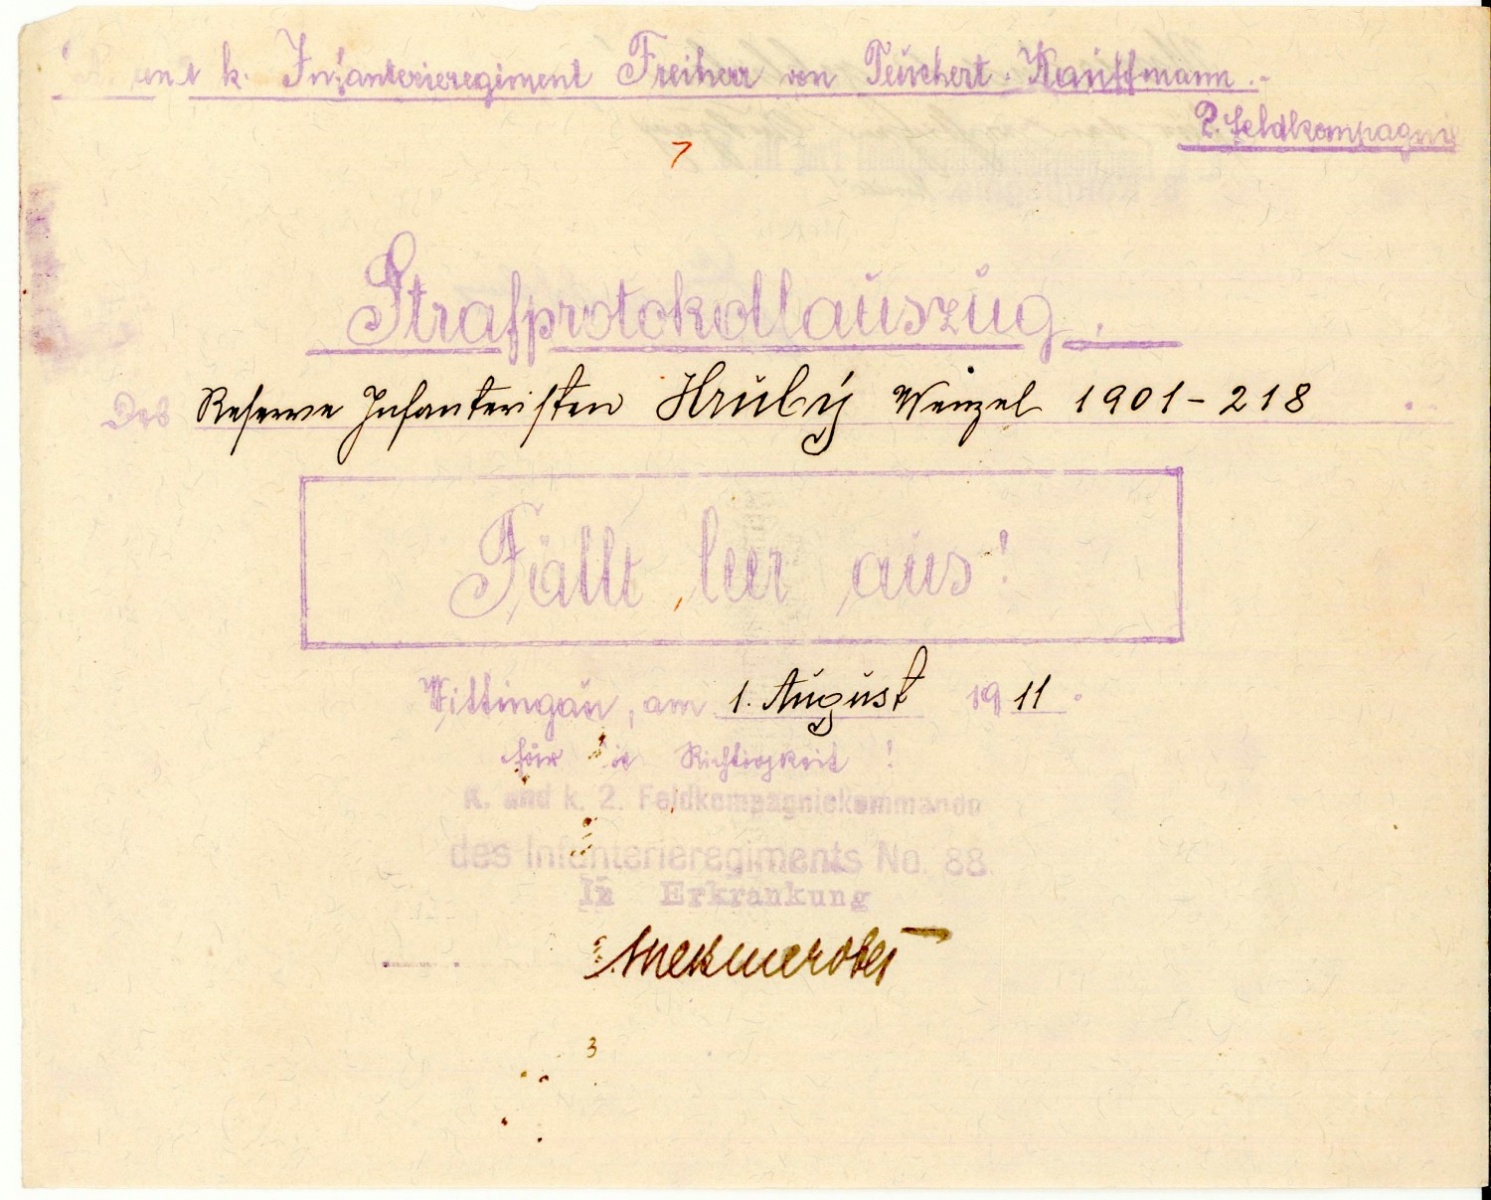 und k. Infanterieregiment Freiherr von Teuchert-Kauffmann.-
2. Feldkompagnie
7
Strafprotokollauszug.
Des Reserve Infanteristen Hrubý Wenzel 1901-218
Fällt leer aus!
Wittingau, am 1. August 1911.
für die Richtigkeit!
K. und k. 2. Feldkompagniekommando
des Infanterieregiments No. 88.
In Erkrankung
3